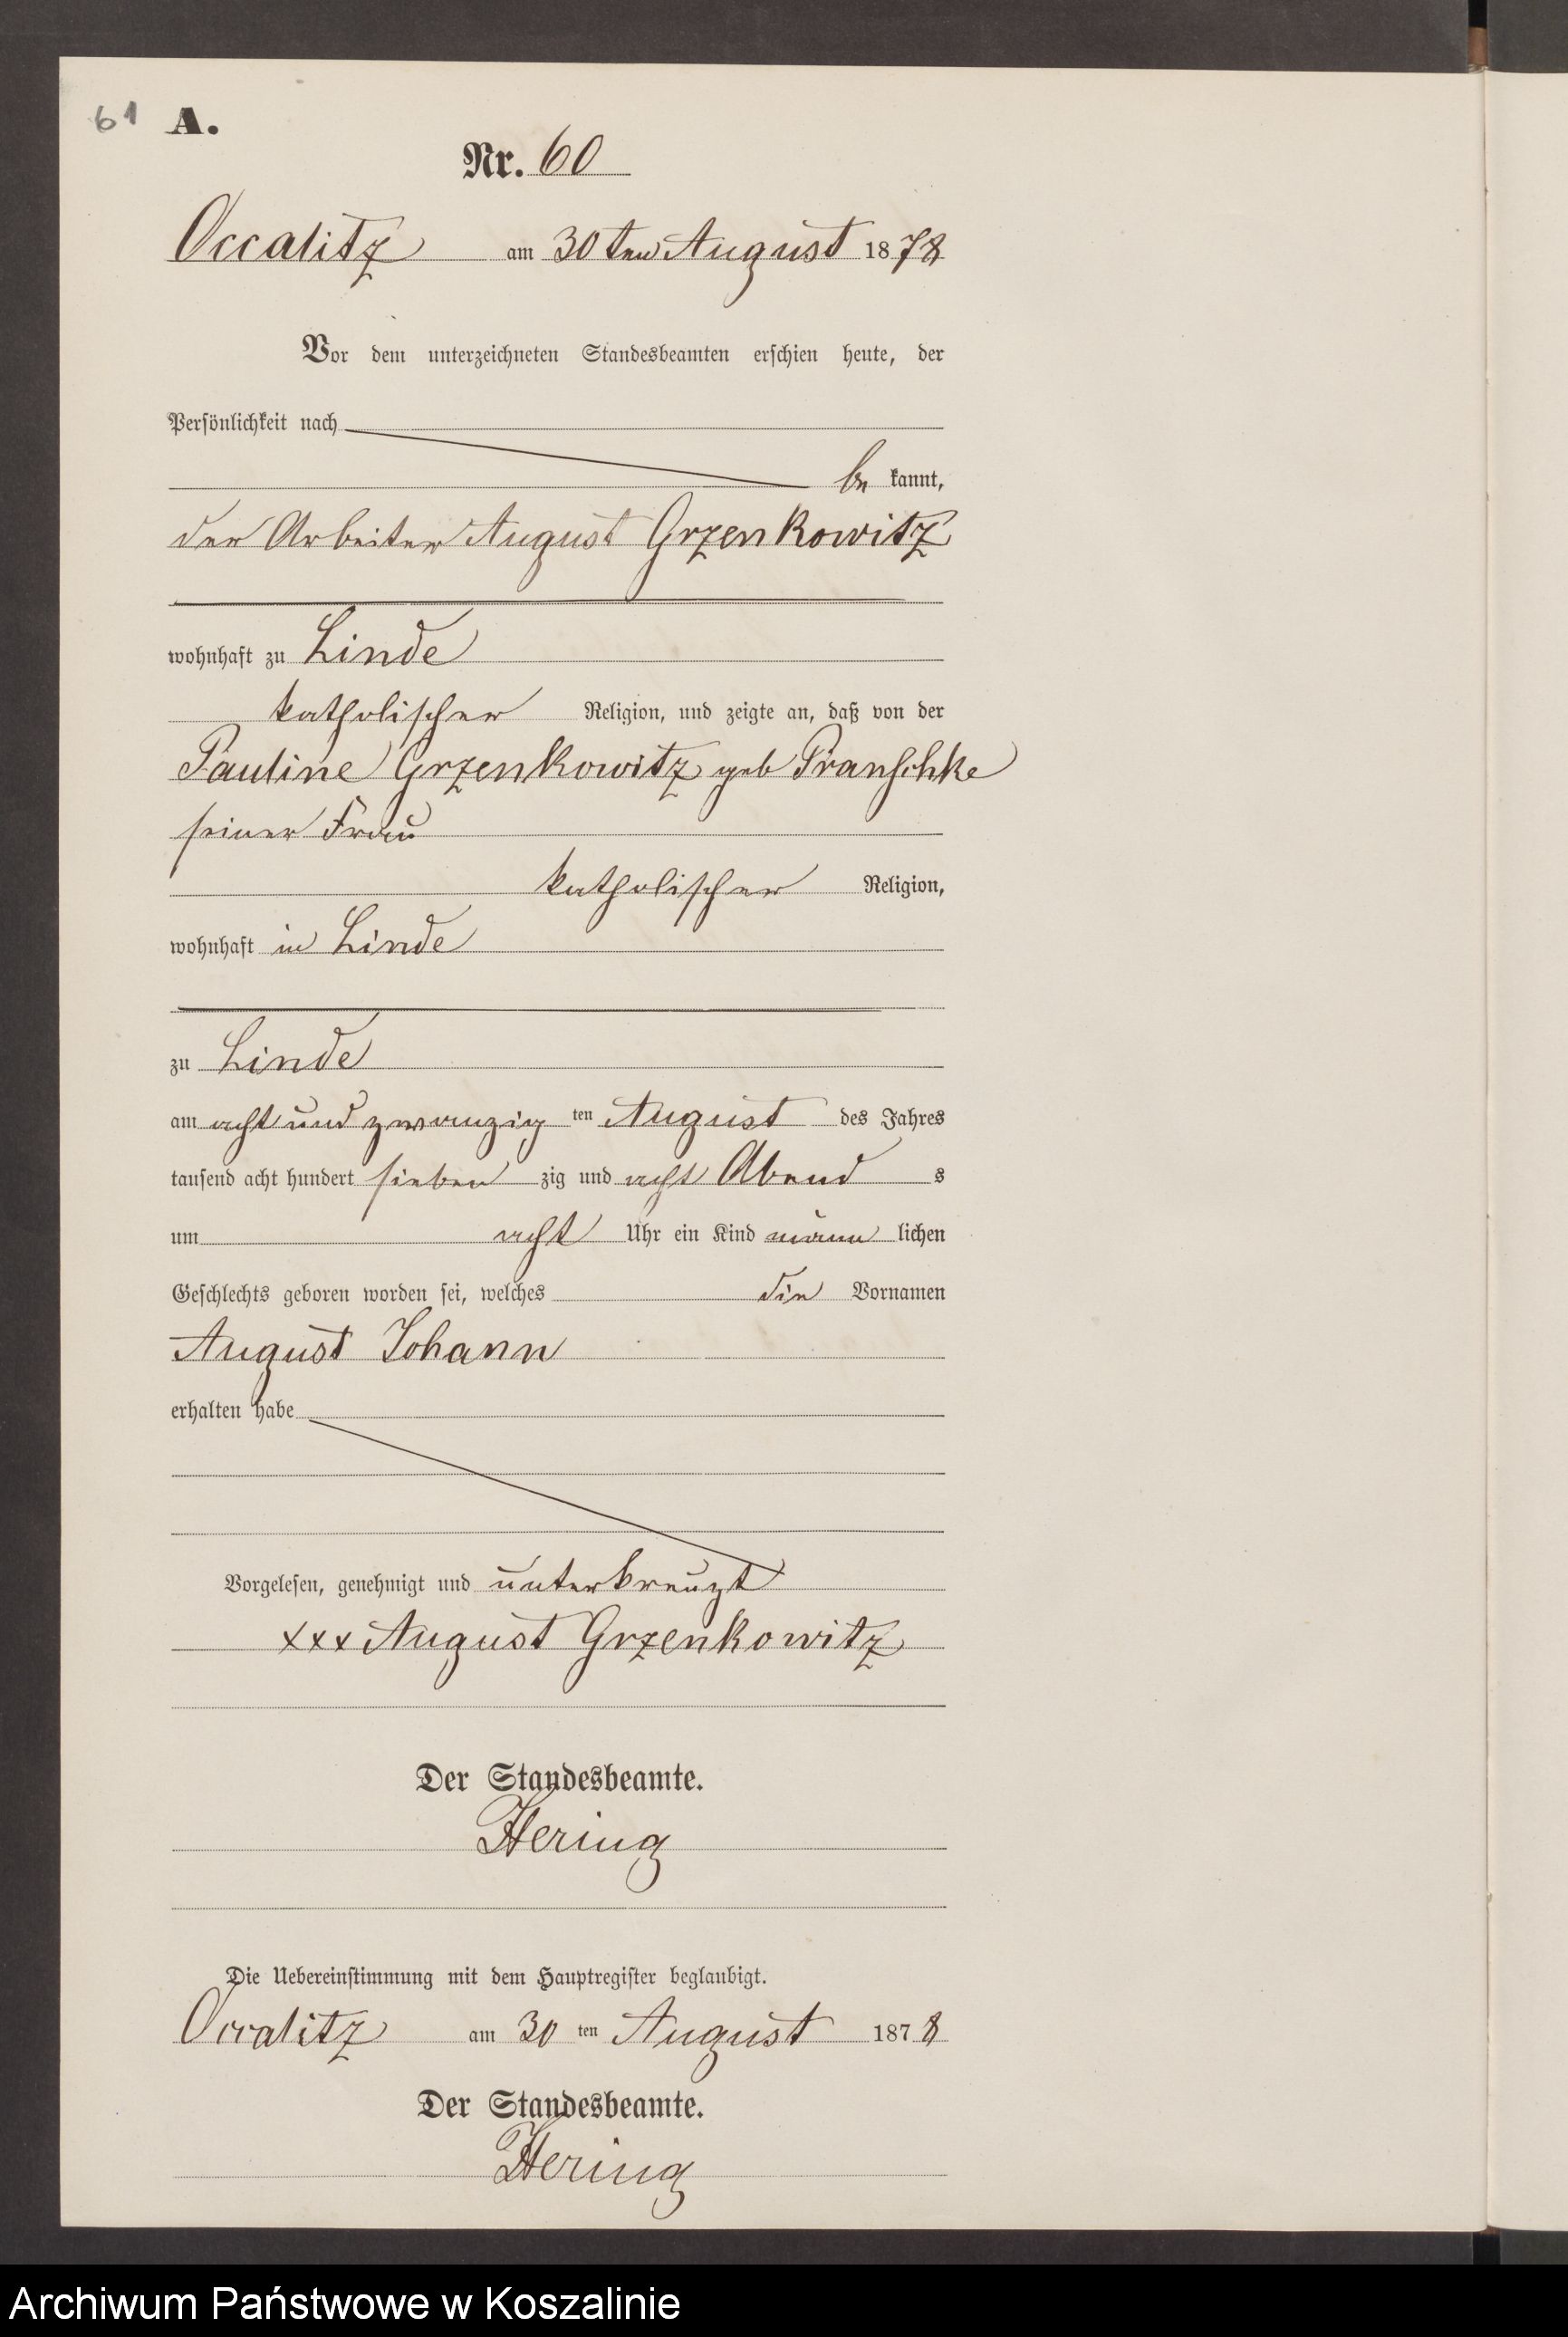 61 A.
Nr. 60
Occalitz am 30ten August 1878
Vor dem unterzeichneten Standesbeamten erschien heute, der
Persönlichkeit nach
be kannt,
der Arbeiter August Grzenkowitz
wohnhaft zu Linde
katholischer Religion, und zeigte an, daß von der
Pauline Grzenkowitz geb Pranschke
seiner Frau
katholischer Religion,
wohnhaft in Linde
zu Linde
am acht und zwanzig ten August des Jahres
tausend acht hundert sieben zig und acht Abend s
um acht Uhr ein Kind männ lichen
Geschlechts geboren worden sei, welches die Vornamen
August Johann
erhalten habe
Vorgelesen, genehmigt und unterkreuzt
xxx August Grzenkowitz
Der Standesbeamte.
Hering
Die Uebereinstimmung mit dem Hauptregister beglaubigt.
Occalitz am 30 ten August 1878
Der Standesbeamte.
Hering
Archiwum Państwowe w Koszalinie